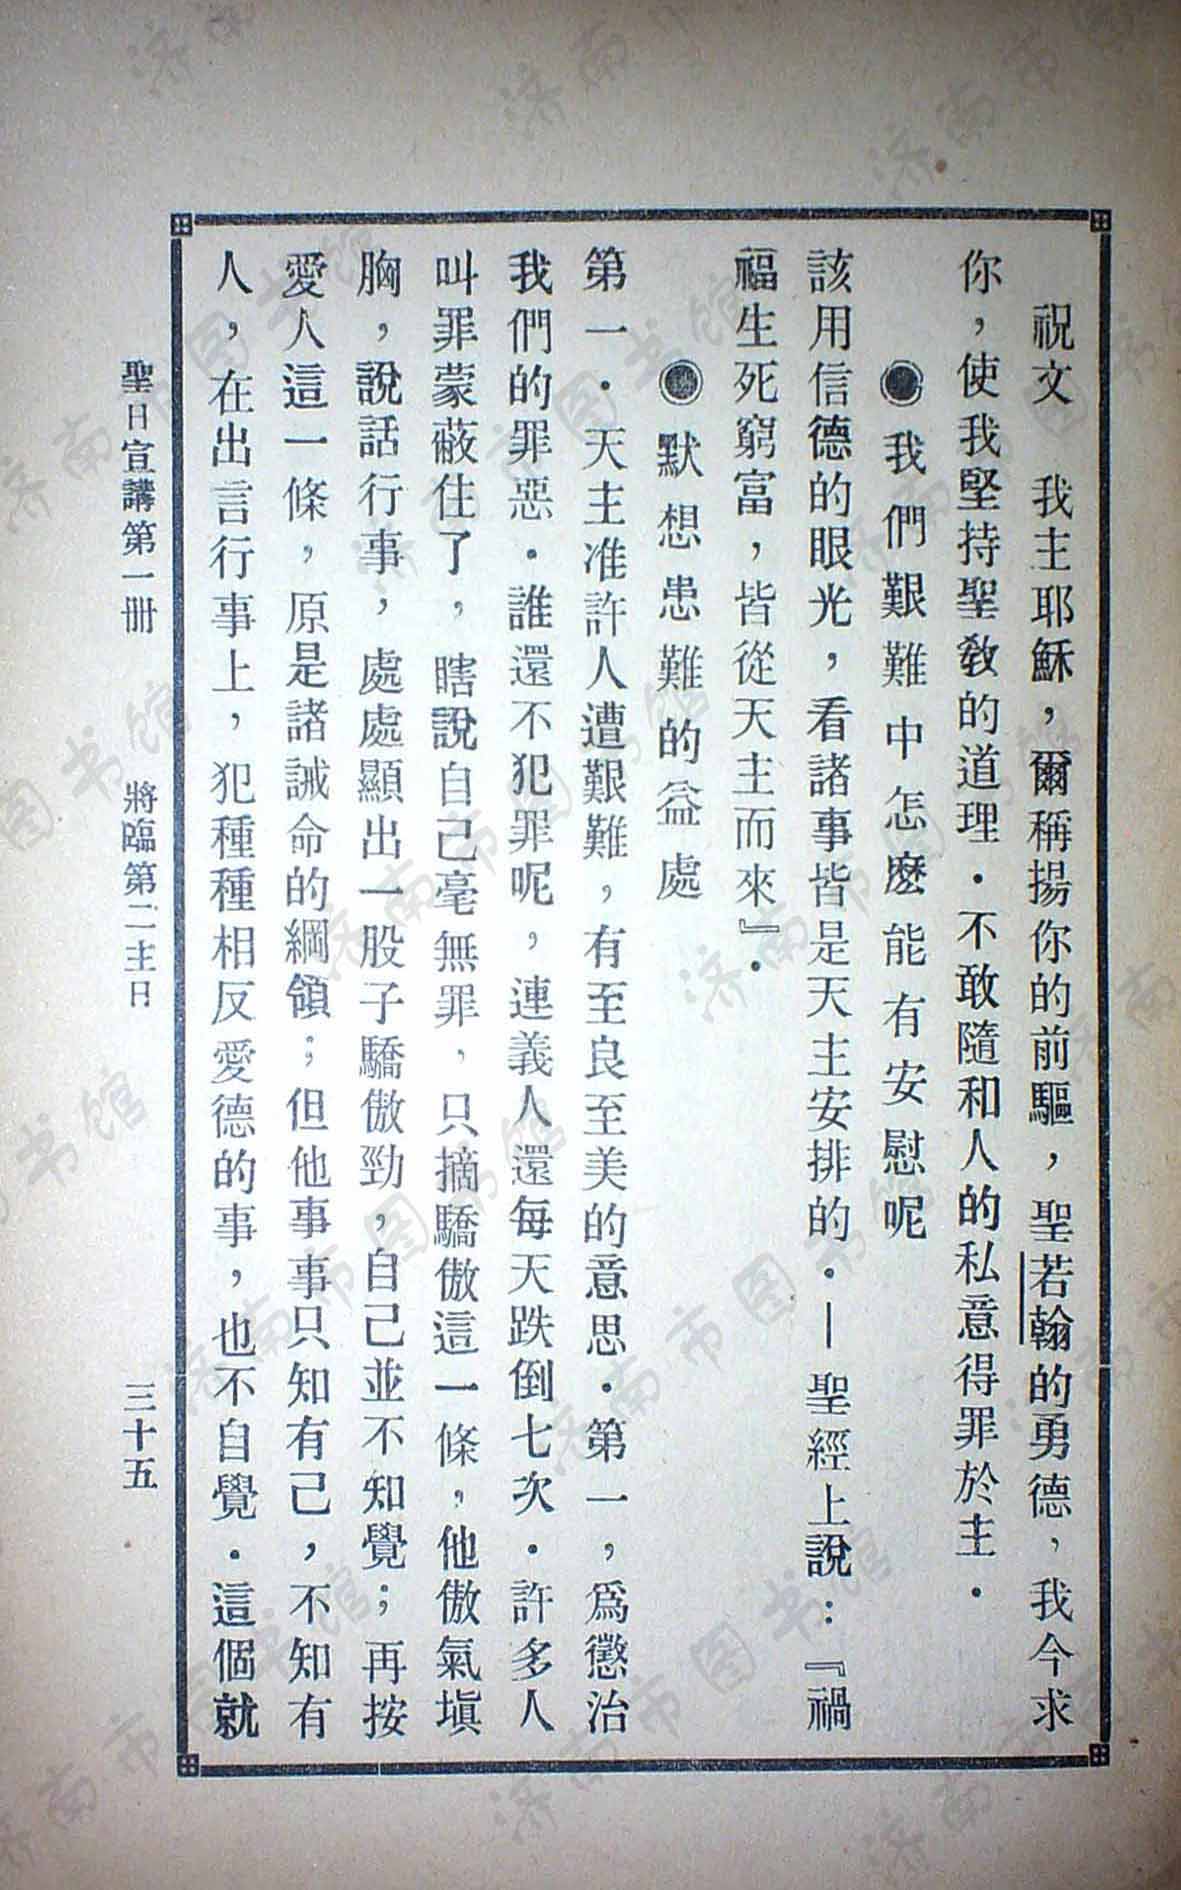 祝文　我主耶穌，爾稱揚你的前驅，聖若翰的勇德，我今求
你，使我堅持聖敎的道理．不敢隨和人的私意得罪於主．
◉我們艱難中怎麽能有安慰呢
該用信德的眼光，看諸事皆是天主安排的．—聖經上說：『禍
福生死窮富，皆從天主而來』．
◉默想患難的益處
第一．天主准許人遭艱難，有至良至美的意思．第一，爲懲治
我們的罪惡．誰還不犯罪呢，連義人還每天跌倒七次．許多人
叫罪蒙蔽住了，瞎說自己毫無罪，只摘驕傲這一條，他傲氣塡
胸，說話行事，處處顯出一股子驕傲勁，自己並不知覺；再按
愛人這一條，原是諸誡命的綱領；但他事事只知有己，不知有
人，在出言行事上，犯種種相反愛德的事，也不自覺．這個就
聖日宣講第一冊　將臨第二主日　三十五
济南市图书馆